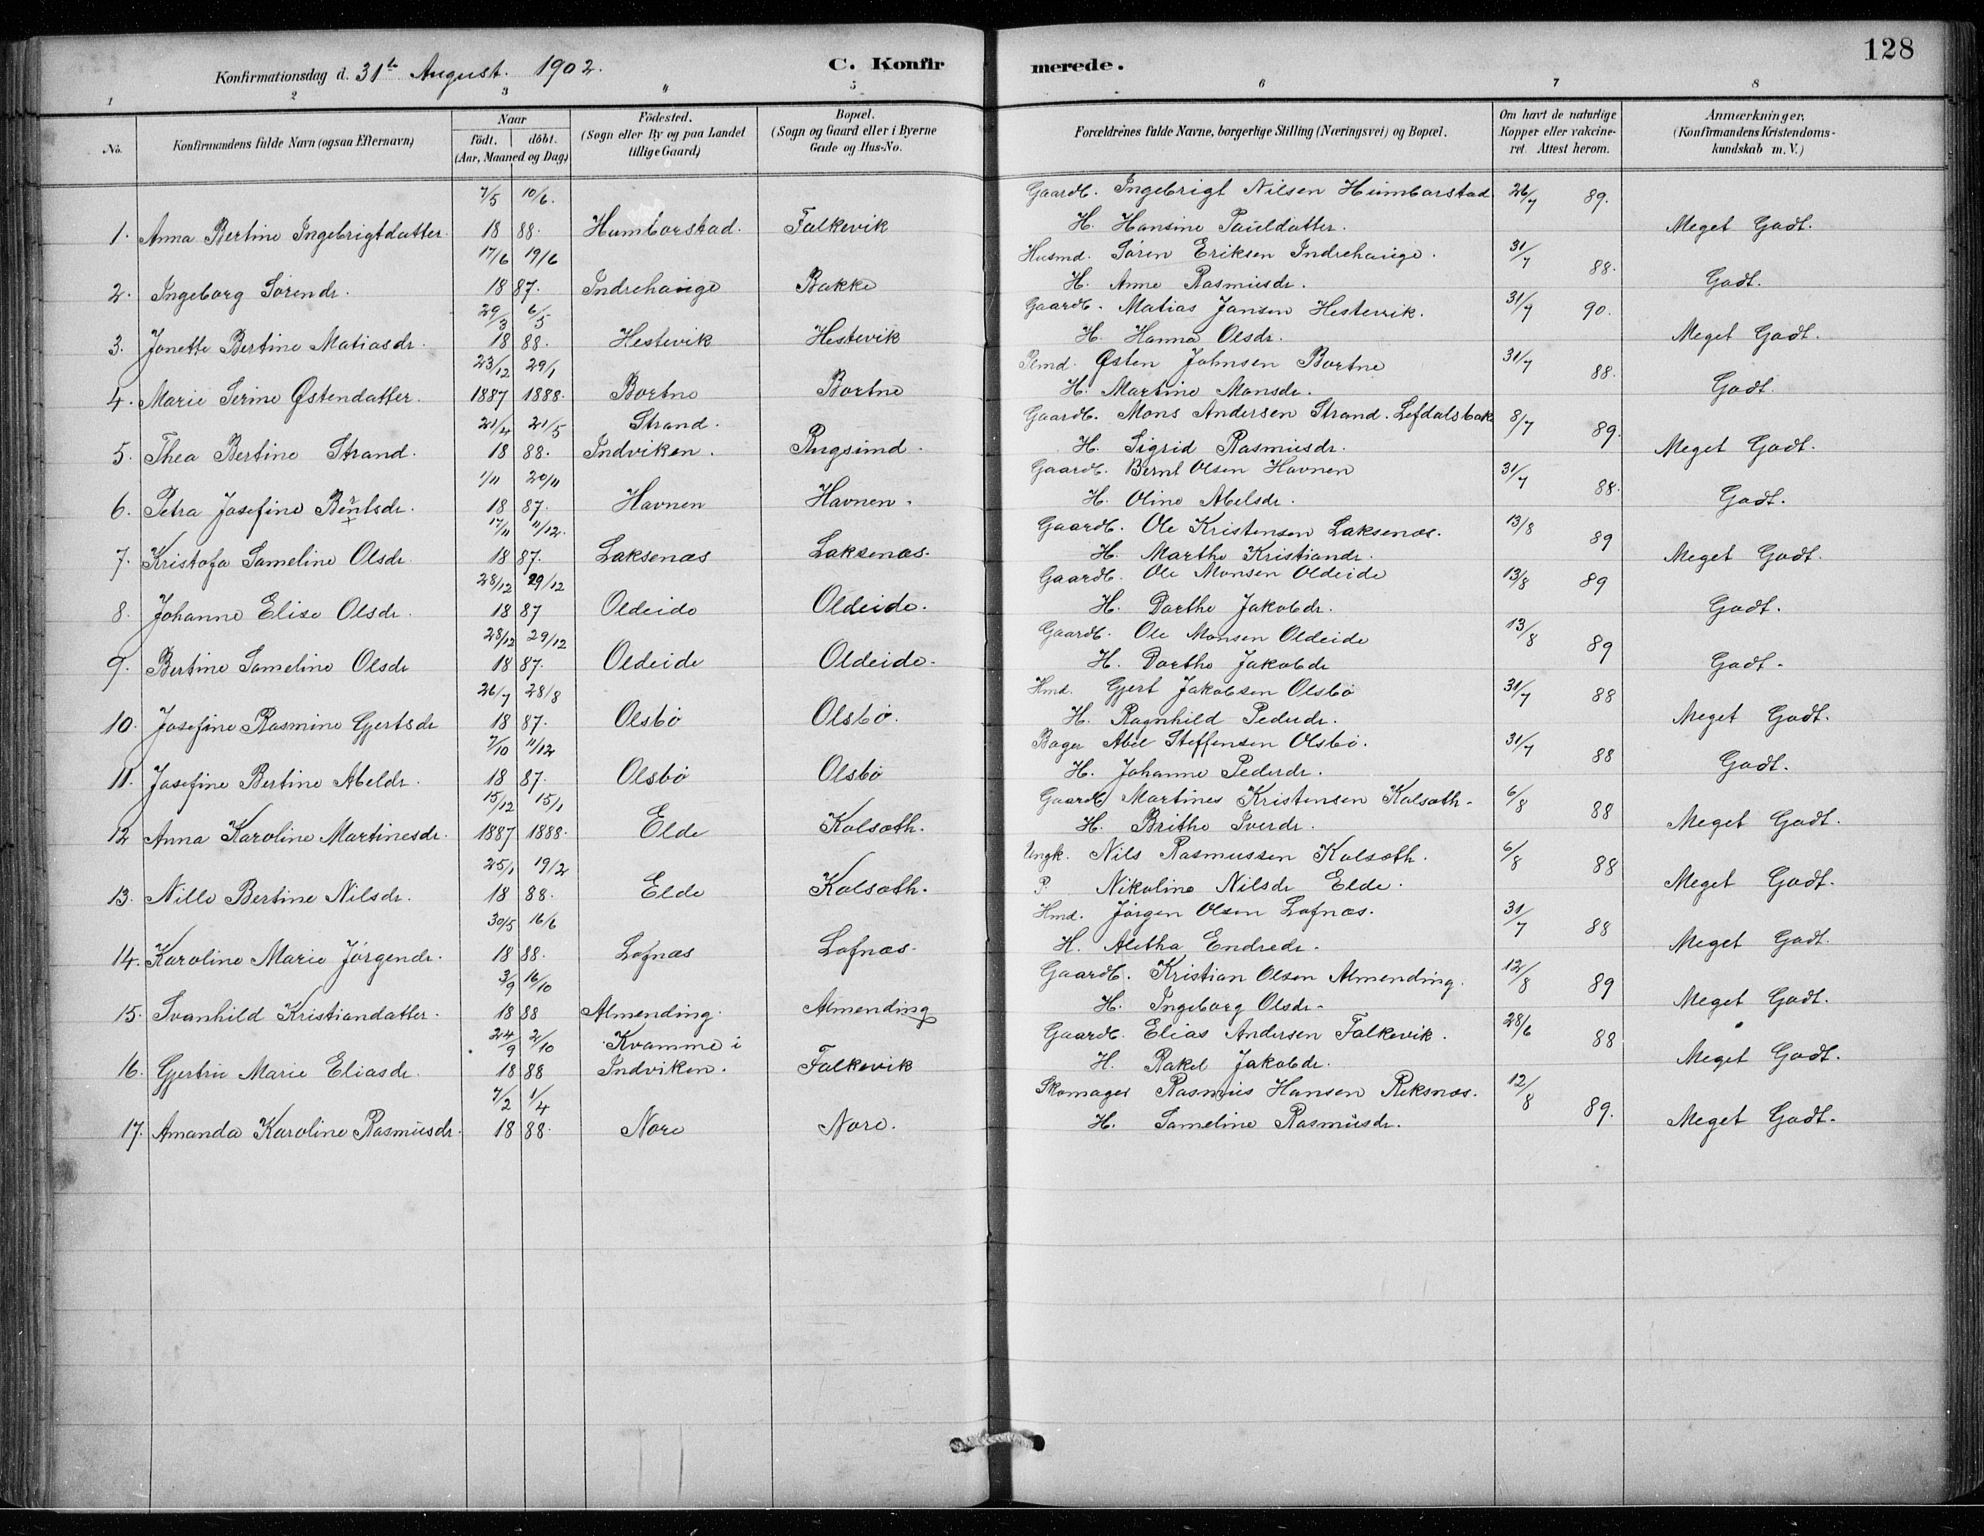 128
Konfirmationsdag d. 31te August. 1902. C. Konfirmerede.
1 2 3 4 5 6 7 8
No. Konfirmandens fulde Navn (ogsaa Efternavn) Naar født. døbt. (Aar, Maaned og Dag) Födested. (Sogn eller By og paa Landet tillige Gaard) Bopæl. (Sogn og Gaard eller i Byerne Gade og Hus-No. Forældrenes fulde Navne, borgerlige Stilling (Næringsvei) og Bopæl. Om havt de naturlige Kopper eller vakcineret. Attest herom. Anmærkninger, (Konfirmandens Kristendomskundskab m. V.)
7/5 10/6. Gaardb. Ingebrigt Nilsen Humborstad 26/7 89.
1. Anna Bertine Ingebrigtdatter. 18 88. Humborstad. Falkevik H. Hansine Pauldatter. Meget Godt.
17/6 19/6 Husmd. Sören Eriksen Indrehauge. 31/7 88.
2. Ingeborg Sörendr. 18 87. Indrehauge Bakke H. Anne Rasmusdr. Godt.
29/3 6/5 Gaardb. Matias Jansen Hestevik. 31/7 90.
3. Janette Bertine Matiasdr. 18 88. Hestevik Hestevik H. Hanna Olsdr. Meget Godt.
23/12 29/1 Plmd. Østen Johnsen Bortne 31/7 88.
4. Marie Serine Østendatter. 1887 1888. Bortne Bortne H. Martine Monsdr. Godt.
21/4 21/5 Strand. Gaardb. Mons Andersen Strand. Lefdalsbak 8/7 89.
5. Thea Bertine Strand. 18 88. Indviken. Rugsund. H. Sigrid Rasmusdr. Meget Godt.
1/11 20/11 Gaardb. Bernt Olsen Havnen 31/7 88.
6. Petra Josefine Berntsdr. 18 87. Havnen Havnen. H. Oline Abelsdr. Godt.
17/11 11/12. Gaardb. Ole Kristensen Laksenæs. 13/8 89
7. Kristofa Sameline Olsdr. 18 87. Laksenæs Laksenæs. H. Marthe Kristiandr. Meget Godt.
28/12 29/12 Gaardb. Ole Monsen Oldeide 13/8 89
8. Johanne Elise Olsdr. 18 87 Oldeide Oldeide. H. Dorthe Jakobdr. Godt.
28/12 29/12 Gaardb. Ole Monsen Oldeide 13/8 89
9. Bertine Sameline Olsdr 18 87. Oldeide Oldeide. H. Dorthe Jakobdr Godt.
26/7 28/8 Hmd. Gjert Jakobsen Olsbö 31/7 88
10. Josefine Rasmine Gjertsdr 18 87. Olsbö Olsbö. H. Ragnhild Pederdr. Meget Godt.
7/10 11/12 Bager Abel Steffensen Olsbö. 31/7 88
11. Josefine Bertine Abeldr. 18 87. Olsbö Olsbö H. Johanne Pederdr. Godt.
15/12 15/1 Gaardb Martines Kristensen Kolsæth. 6/8 88
12 Anna Karoline Martinesdr. 1887 1888. Elde Kolsæth. H. Brithe Iverdr. Meget Godt.
25/1 19/2 Ungk. Nils Rasmussen Kolsæth. 6/8 88
13. Nille Bertine Nilsdr. 18 88. Elde Kolsæth. P. Nikoline Nilsdr Elde. Meget Godt.
30/5 16/6 Hmd. Jörgen Olsen Lofnæs. 31/7 88
14. Karoline Marie Jörgendr. 18 88. Lofnæs Lofnæs. H. Aletha Endredr. Meget Godt.
3/9 16/10 Gaardb. Kristian Olsen Almending. 12/8 89
15. Svanhild Kristiandatter. 18 88 Almending. Almending H. Ingeborg Olsdr. Meget Godt.
24/9 2/10 Kvamme i Gaardb. Elias Andersen Falkevik. 28/6 88
16. Gjertrie Marie Eliasdr. 18 88 Indviken. Falkevik H. Rakel Jakobdr. Meget Godt.
7/2 1/4 Skomager Rasmus Hansen Reksnæs. 12/8 89.
17. Amanda Karoline Rasmusdr. 18 88. Nore Nore. H. Sameline Rasmusdr. Meget Godt.